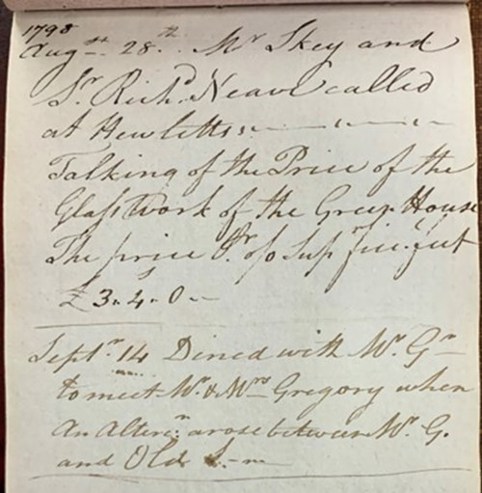 1798
Augst 28th. Mr Skey and
Sr. Richd. Neave called
at Hewletts
Talking of the Price of the
Glass Work of the Green House
The price Pr. Supr. ficl. feet
£3. 4. 0.
Septr. 14 Dined with Mr. Gn
to meet Mr. & Mrs Gregory when
An Alterc:n arose between Mr. G.
and Old S.